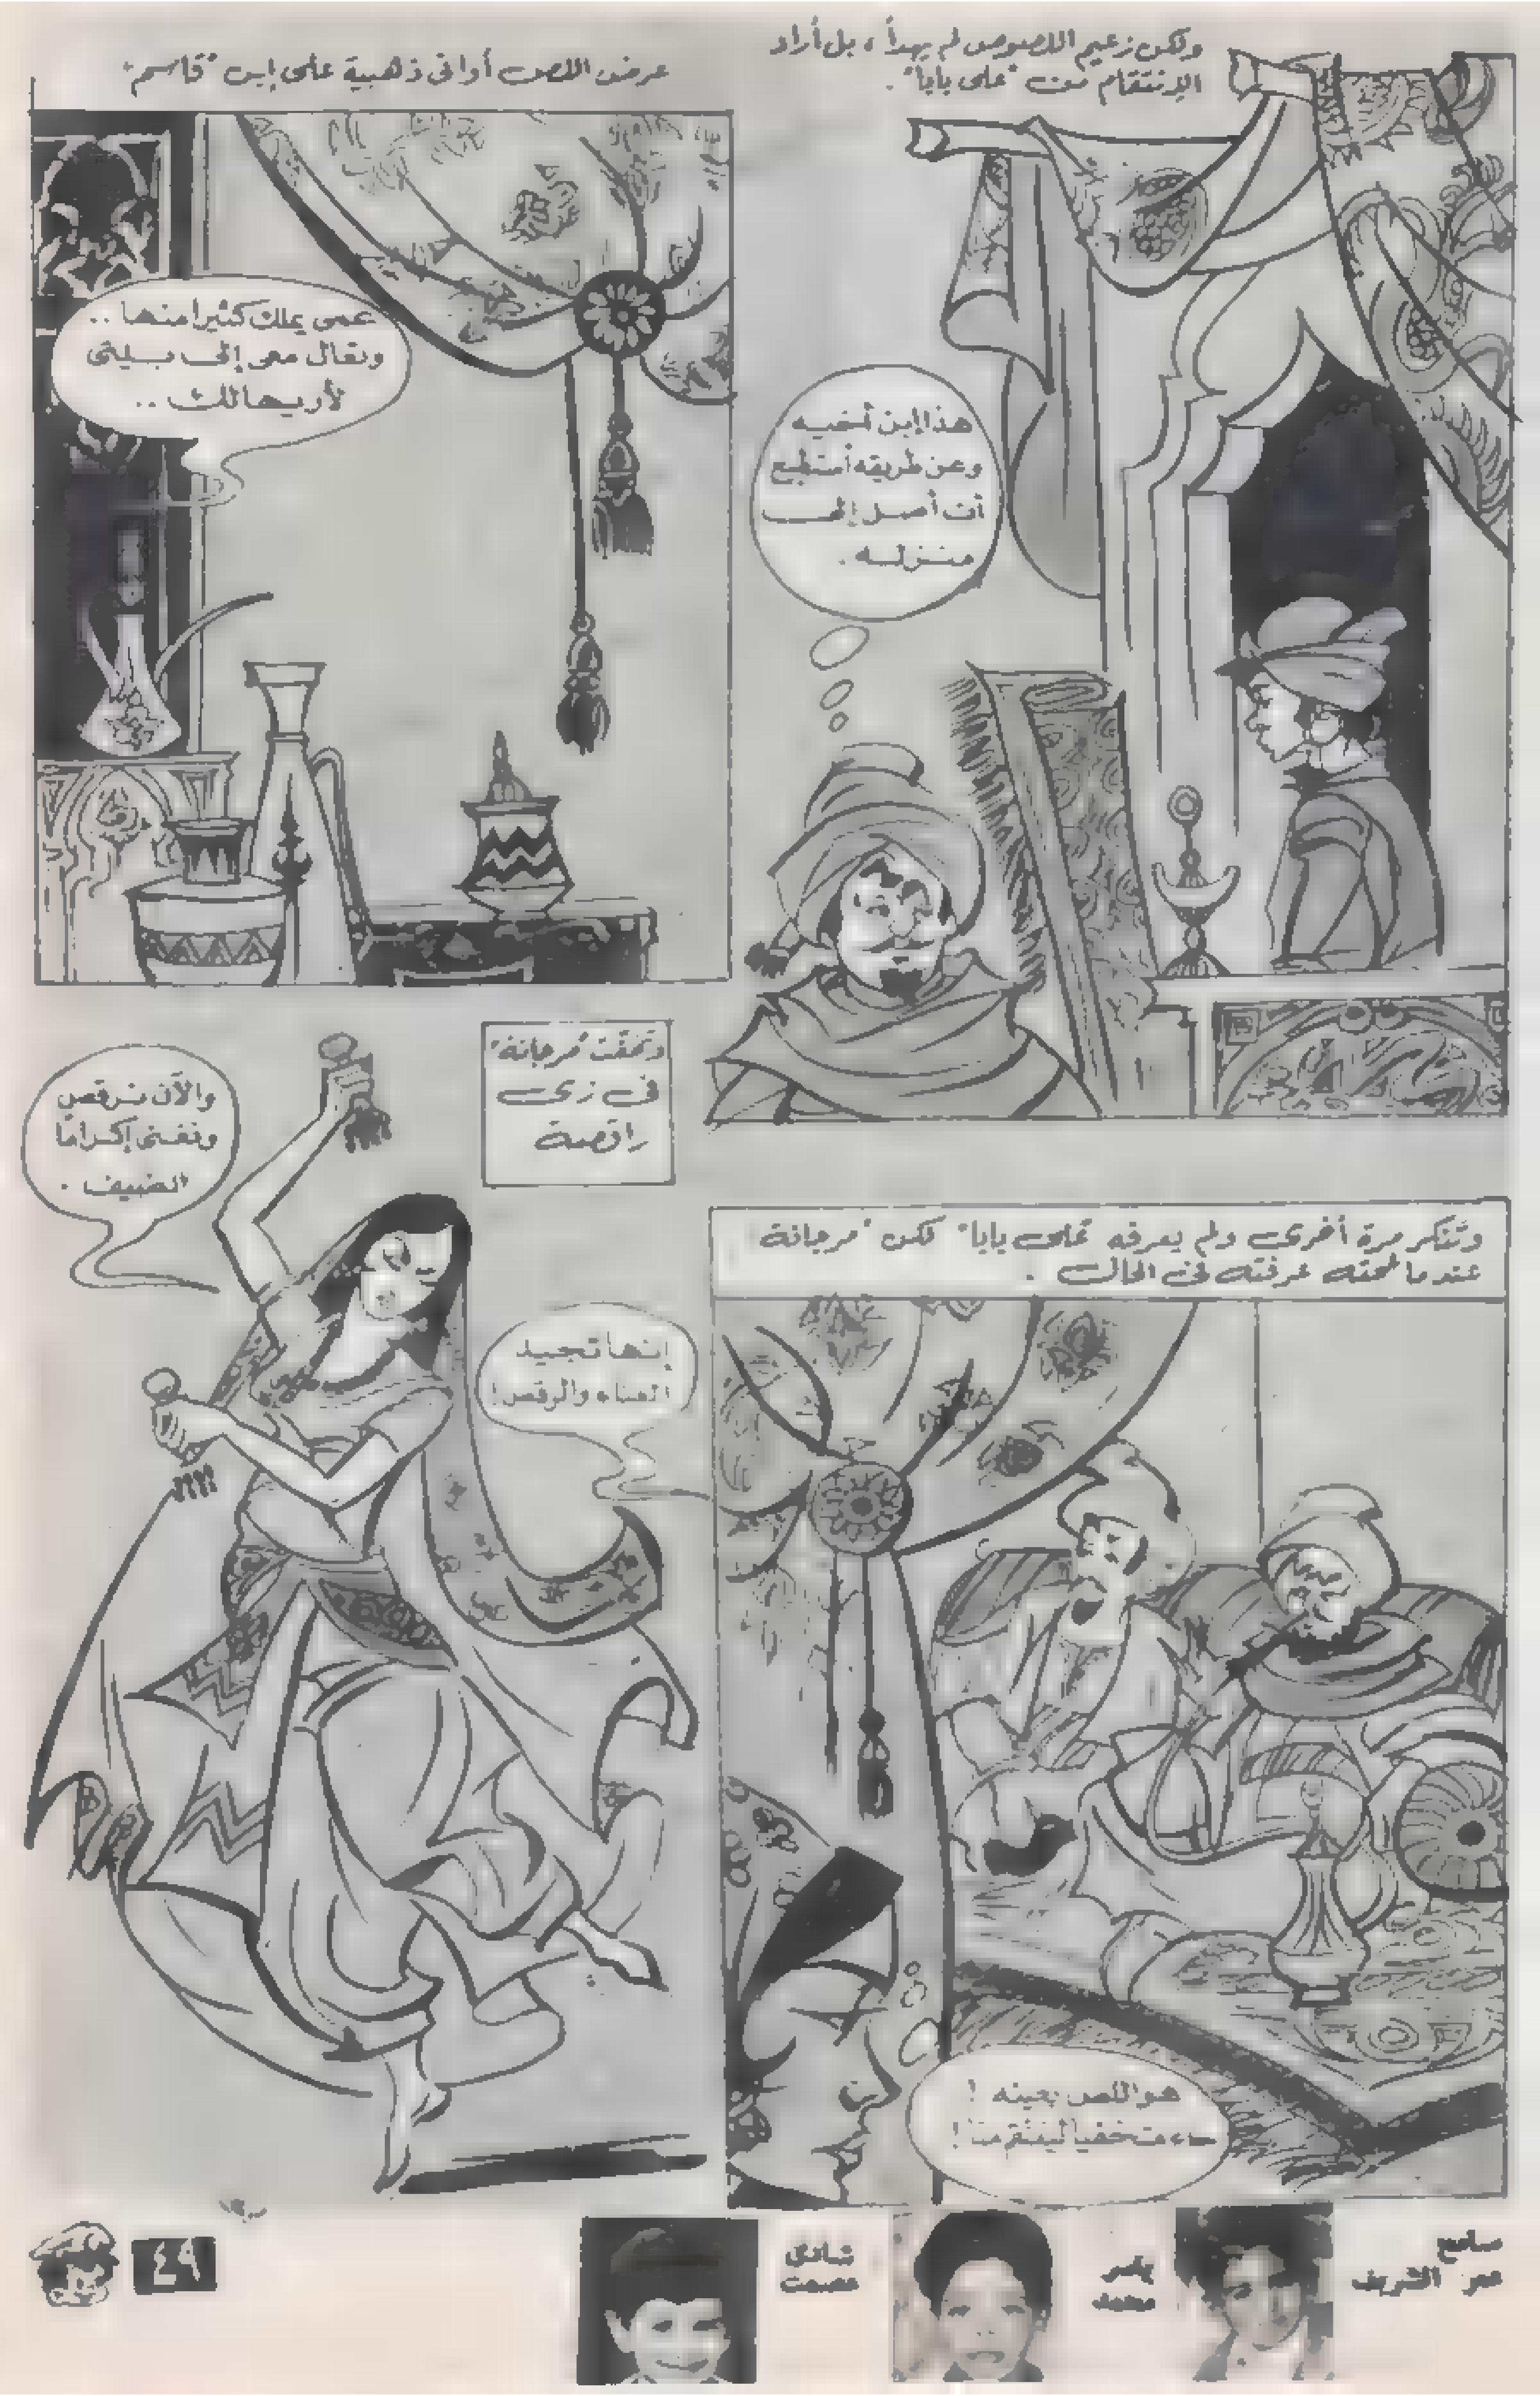 ولكن زعيم اللصوص لم يهدأ، بل أراد
الإنتقام من "على بابا".
هذا إبن أخيه
وعن طريقه أستطيع
أن أصل إلى
منزله.
عرض اللص أوانى ذهبية على إبن "قاسم"
عمى يملك كثيرا منها..
وتعال معى إلى بيتى
لأريها لك..
وتنكر مرة أخرى ولم يعرفه "على بابا" لكن "مرجانة
عندما لمحته عرفته فى الحال.
هو اللص بعينه!
جاء متخفيا لينتقم منا!
وتخفت "مرجانة"
فى زى
راقصة
والآن نرقص
ونغنى إكراما
للضيف.
إنها تجيد
الغناء والرقص!
سامح
عمر الشريف
ياسر
محمد
شادى
عصمت
٤٩